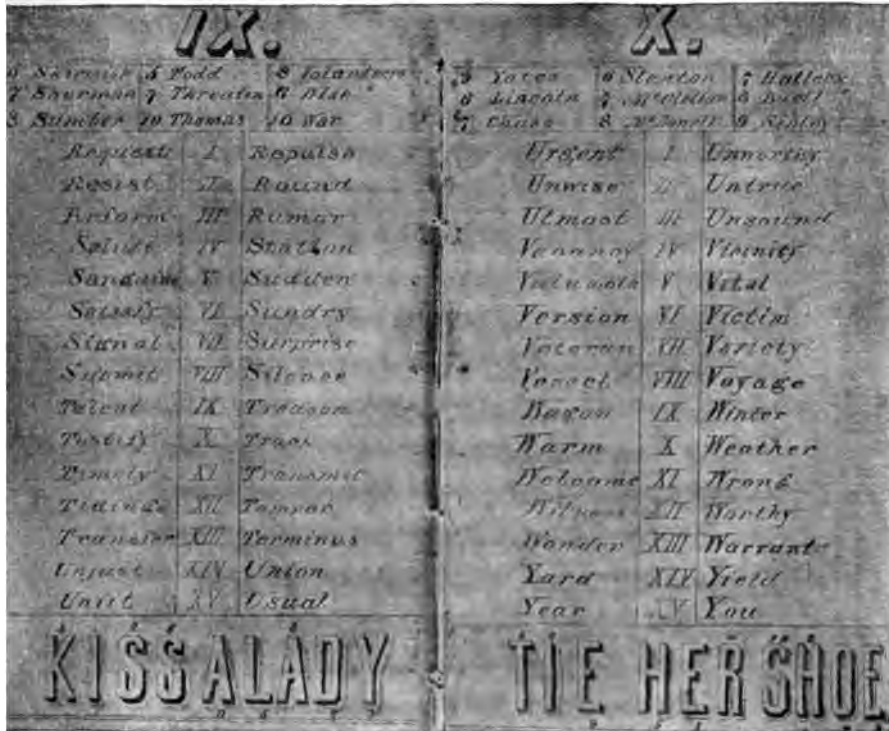 IX.
Todd
7 7
10 Thomas 10 War
Request I Repulse
Resist II Round
Reform III Rumor
Salute IV Station
Sanguine V Sudden
Satisfy VI Sundry
Signal VII Surprise
Submit VIII Silence
Talent IX Treason
Testify X
Timely XI Transmit
Tidings XII
Transfer XIII Terminus
Unjust XIV Union
Unfit XV Usual
KISS A LADY
X.
Yates 6 Stanton 7
6 Lincoln 7 8
7 Chase 8 9
Urgent I Unworthy
Unwise II Untrue
Utmost III Unsound
Vacancy IV Vicinity
Valuable V Vital
Version VI Victim
Veteran VII Variety
Vessel VIII Voyage
Wagon IX Winter
Warm X Weather
Welcome XI Wrong
Witness XII Worthy
Wonder XIII Warrant
Yard XIV Yield
Year XV You
TIE HER SHOE